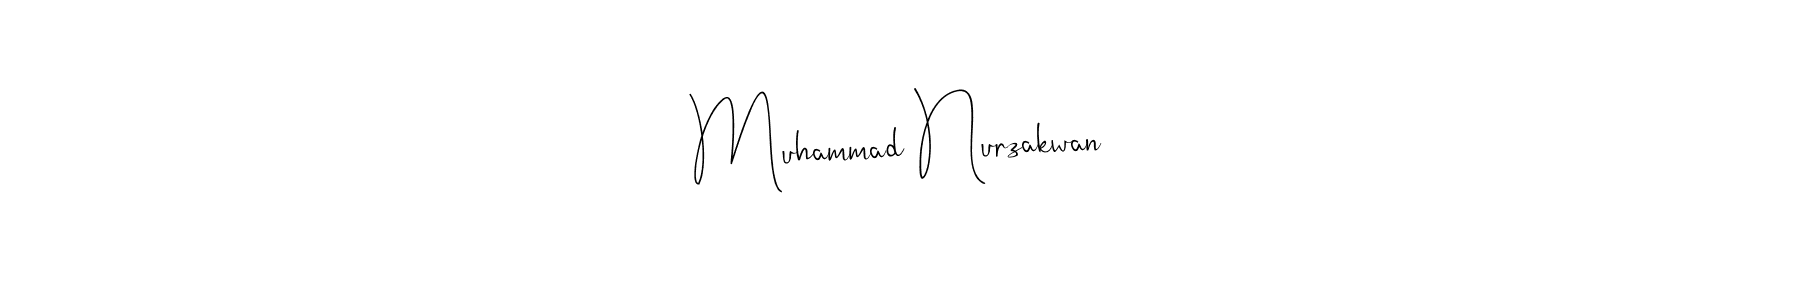 Muhammad Nurzakwan